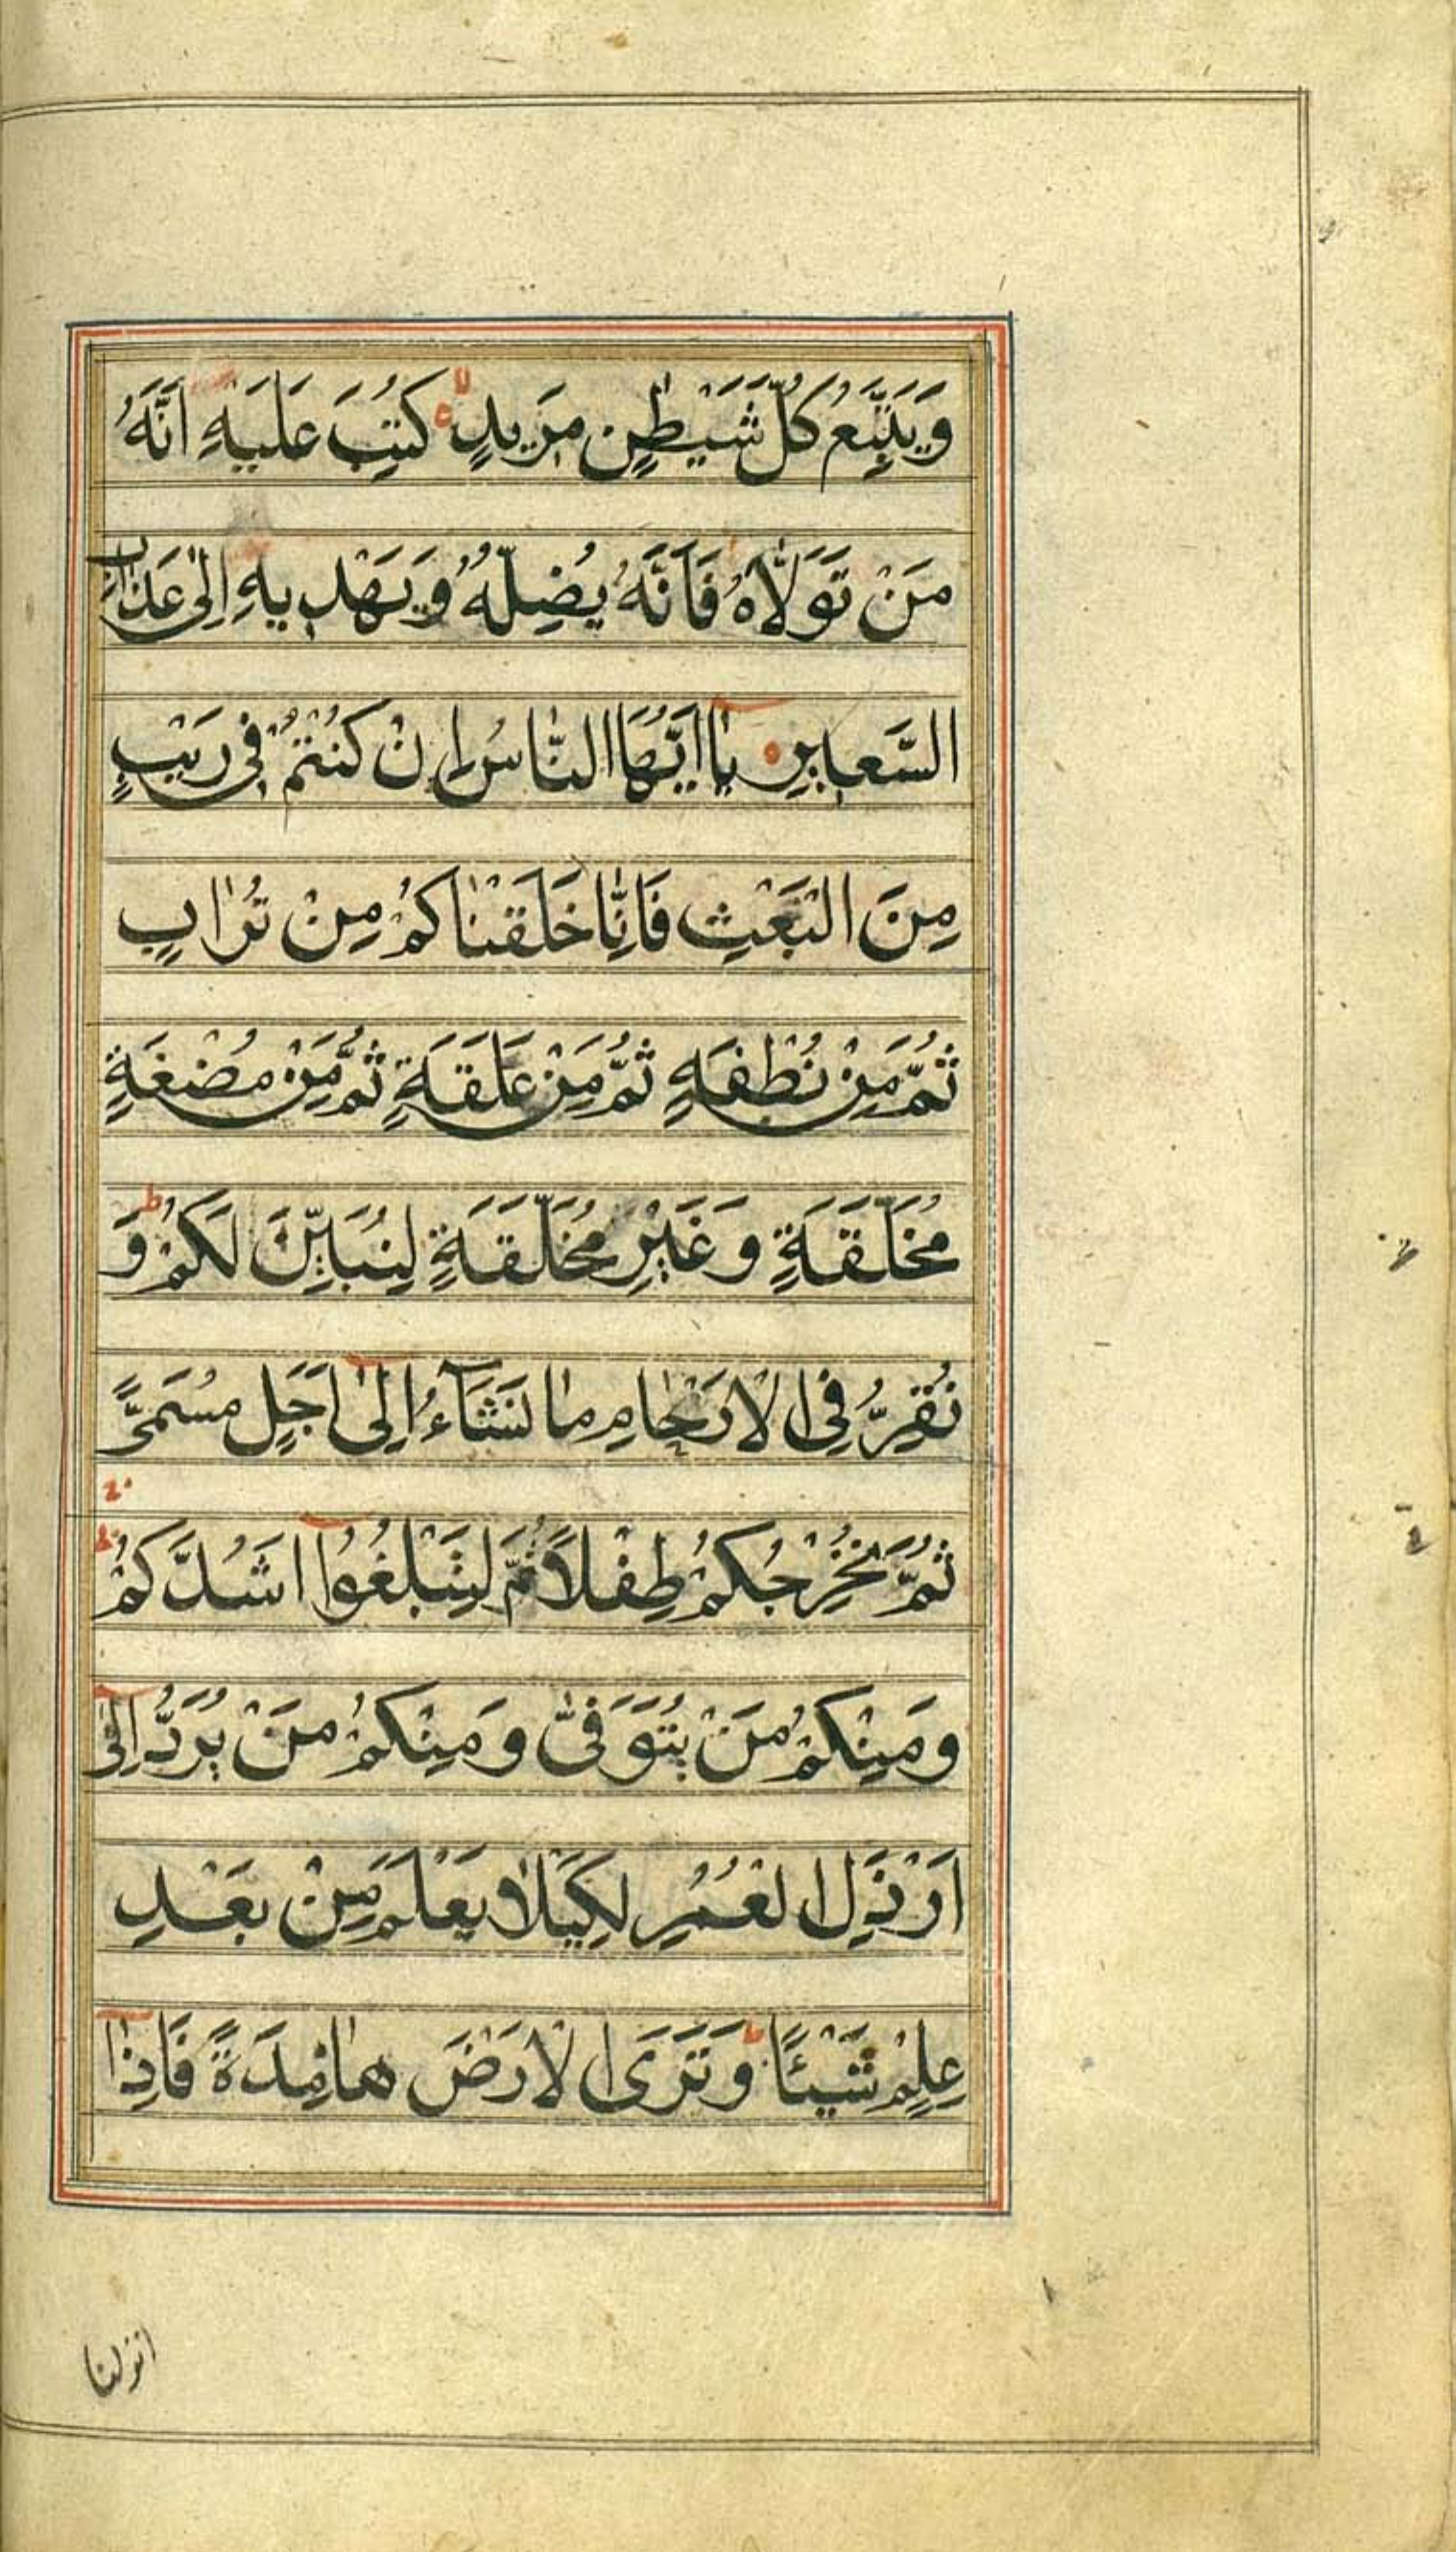 وَيَتَّبِعُ كُلَّ شَيْطٰنٍ مَرِيدٍ كُتِبَ عَلَيْهِ اَنَّهُ
مَنْ تَوَلَّاهُ فَاَنَّهُ يُضِلُّهُ وَيَهْدِيهِ اِلٰى عَذَابِ
السَّعِيرِ يَا اَيُّهَا النَّاسُ اِنْ كُنْتُمْ فِى رَيْبٍ
مِنَ الْبَعْثِ فَاِنَّا خَلَقْنَاكُمْ مِنْ تُرَابٍ
ثُمَّ مِنْ نُطْفَةٍ ثُمَّ مِنْ عَلَقَةٍ ثُمَّ مِنْ مُضْغَةٍ
مُخَلَّقَةٍ وَغَيْرِ مُخَلَّقَةٍ لِنُبَيِّنَ لَكُمْ ط وَ
نُقِرُّ فِى الْاَرْحَامِ مَا نَشَآءُ اِلٰى اَجَلٍ مُسَمًّى
ثُمَّ نُخْرِجُكُمْ طِفْلًا ثُمَّ لِتَبْلُغُوا اَشُدَّكُمْ
وَمِنْكُمْ مَنْ يُتَوَفّٰى وَمِنْكُمْ مَنْ يُرَدُّ اِلٰى
اَرْذَلِ الْعُمُرِ لِكَيْلَا يَعْلَمَ مِنْ بَعْدِ
عِلْمٍ شَيْئًا ط وَتَرَى الْاَرْضَ هَامِدَةً فَاِذَا
انزلنا